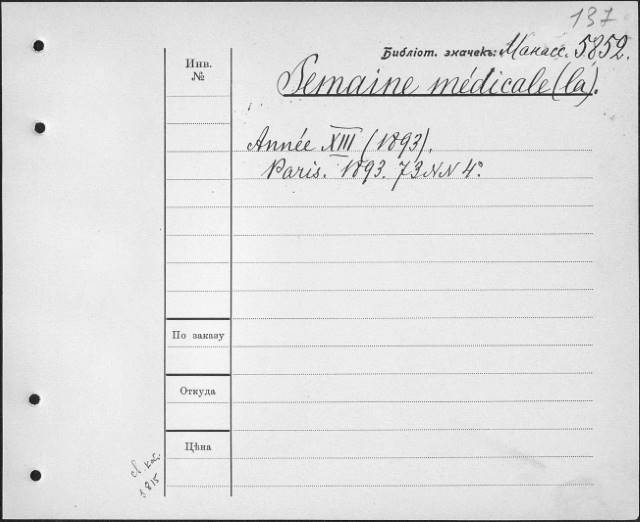 137
Библіот. значекъ: Манасс. 5852.
Инв.
№
Semaine médicale (la).
Année XIII (1893).
Paris. 1893. 73 NN 4°.
По заказу
Откуда
Цѣна